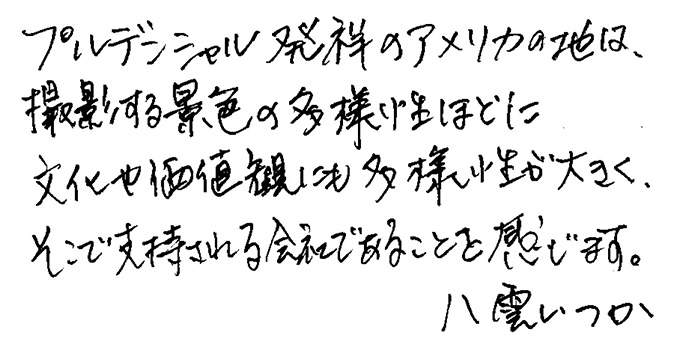 プルデンシャル発祥のアメリカの地は、
撮影する景色の多様性ほどに
文化や価値観にも多様性が大きく、
そこで支持される会社であることを感じます。
八雲いつか